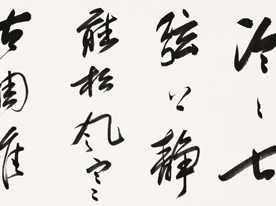 泠〻七
弦上静
聽松風寒
古調雖